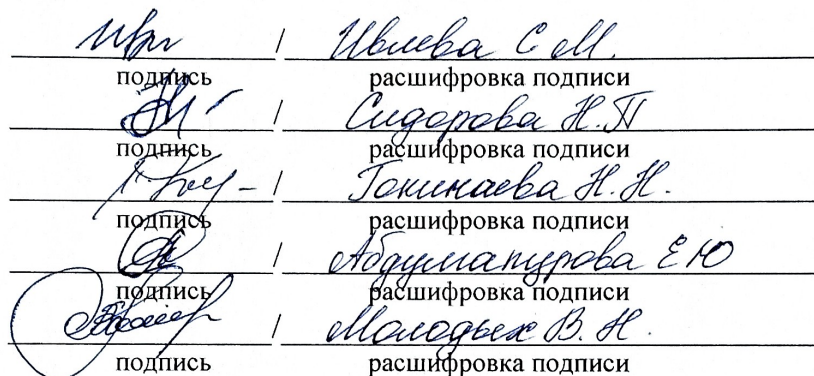 / Ивлева С М.
подпись расшифровка подписи
/ Сидорова Н.П
подпись расшифровка подписи
/ Н.Н.
подпись расшифровка подписи
/ Е Ю
подпись расшифровка подписи
/ Молодых В. Н.
подпись расшифровка подписи